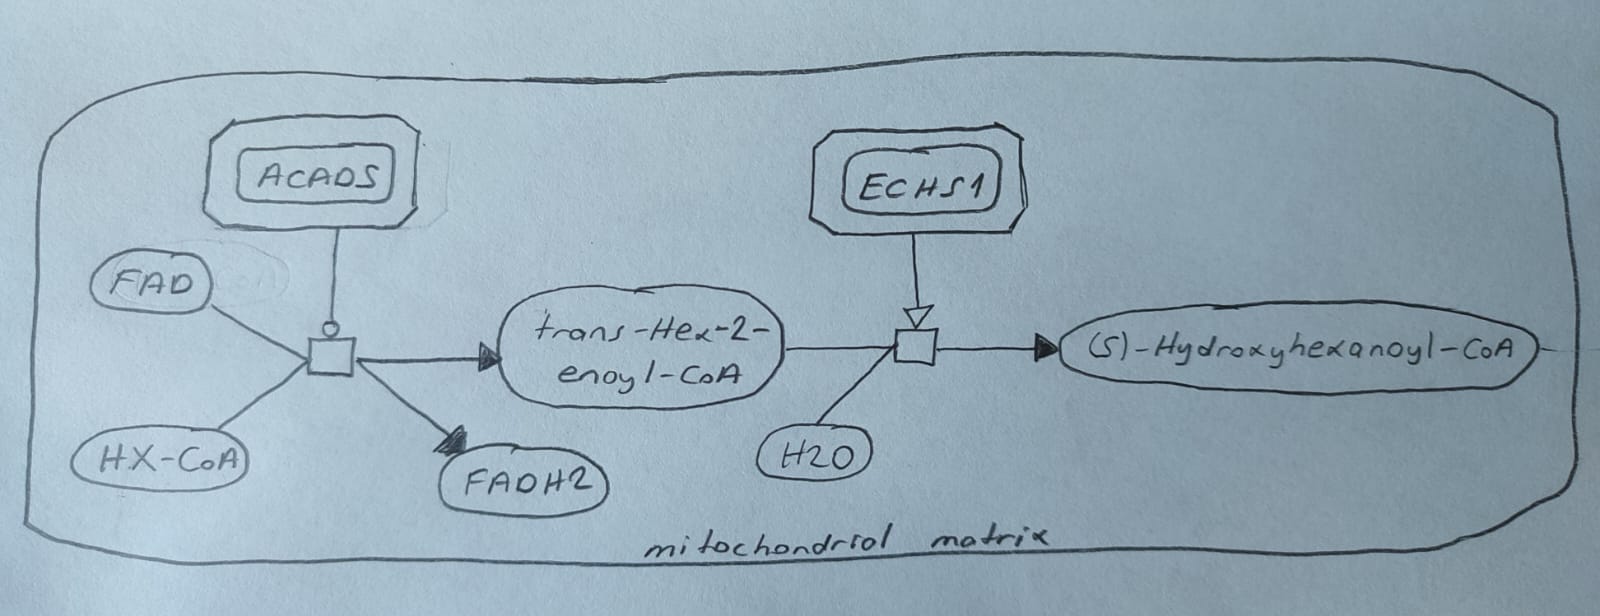 ACADS
ECHS1
FAD
trans-Hex-2-
enoyl-CoA
(S)-Hydroxyhexanoyl-CoA
HX-CoA
FADH2
H2O
mitochondrial matrix